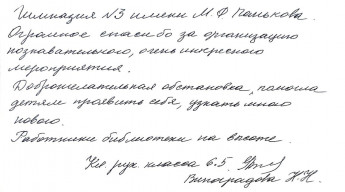 Гимназия №3 имени М.Ф Панькова.
Огромное спасибо за организацию
познавательного, очень интересного
мероприятия.
Доброжелательная обстановка, помогла
детям проявить себя, узнать много
нового.
Работники библиотеки на высоте.
Кл. рук. класса 6.5
Виноградова Н.Н.